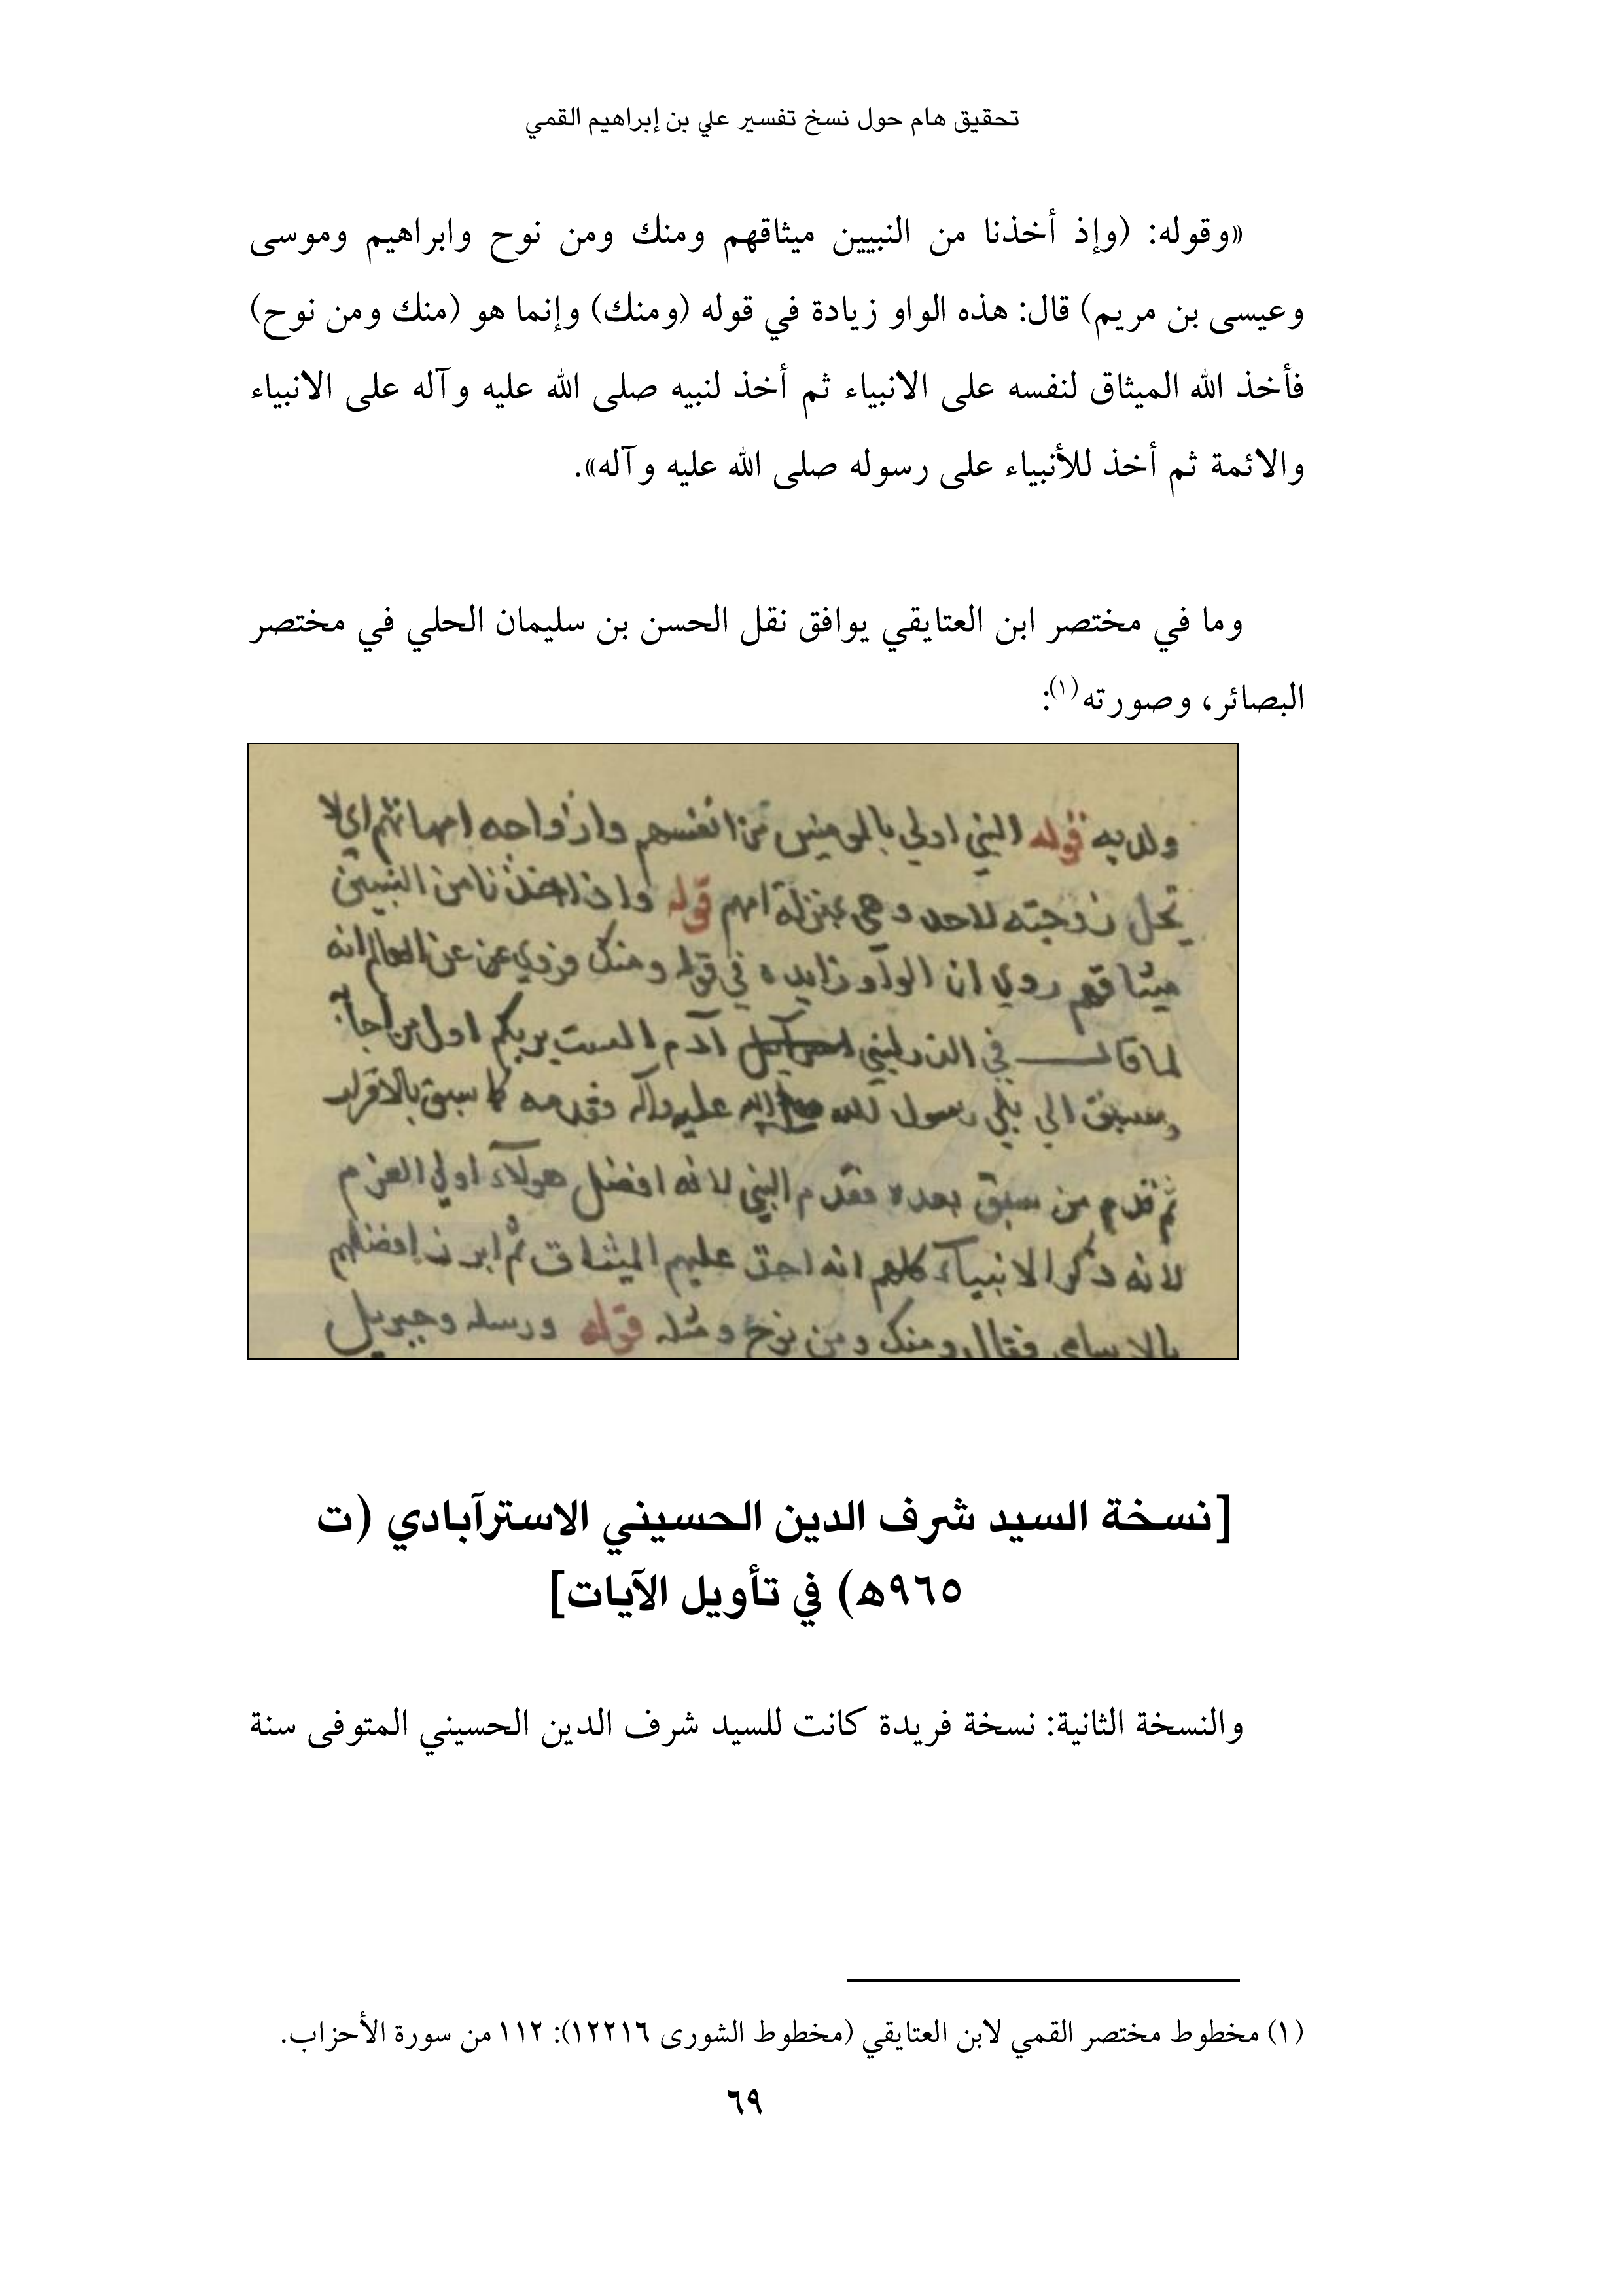 تحقيق هام حول نسخ تفسير علي بن إبراهيم القمي
«وقوله: (وإذ أخذنا من النبيين ميثاقهم ومنك ومن نوح وابراهيم وموسى
وعيسى بن مريم) قال: هذه الواو زيادة في قوله (ومنك) وإنما هو (منك ومن نوح)
فأخذ الله الميثاق لنفسه على الانبياء ثم أخذ لنبيه صلى الله عليه وآله على الانبياء
والائمة ثم أخذ للأنبياء على رسوله صلى الله عليه وآله».
وما في مختصر ابن العتايقي يوافق نقل الحسن بن سليمان الحلي في مختصر
البصائر، وصورته(١):
قوله النبي اولي بالمومنين من انفسهم وازواجه امهاتهم اي لا
تحل زوجته لاحد وهي بمنزلة امهم قوله واذ اخذنا من النبيين
ميثاقهم روي ان الواو زايده في قوله ومنك وروي عن العالم انه
لما قال في الذر لبني آدم الست بربكم اول من اجاب
وسبق الي بلي رسول الله صلى الله عليه وآله فقدمه كما سبق بالاقرار
ثم قدم من سبق بعده فقدم النبي لانه افضل هولآء اولي العزم
لانه ذكر الانبيآء كلهم انه اخذ عليهم الميثاق ثم ابرز افضلهم
بالاسامي فقال ومنك ومن نوح ومثله قوله ورسله وجبريل
[نسخة السيد شرف الدين الحسيني الاسترآبادي (ت
٩٦٥هـ) في تأويل الآيات]
والنسخة الثانية: نسخة فريدة كانت للسيد شرف الدين الحسيني المتوفى سنة
(١) مخطوط مختصر القمي لابن العتايقي (مخطوط الشورى ١٢٢١٦): ١١٢ من سورة الأحزاب.
٦٩